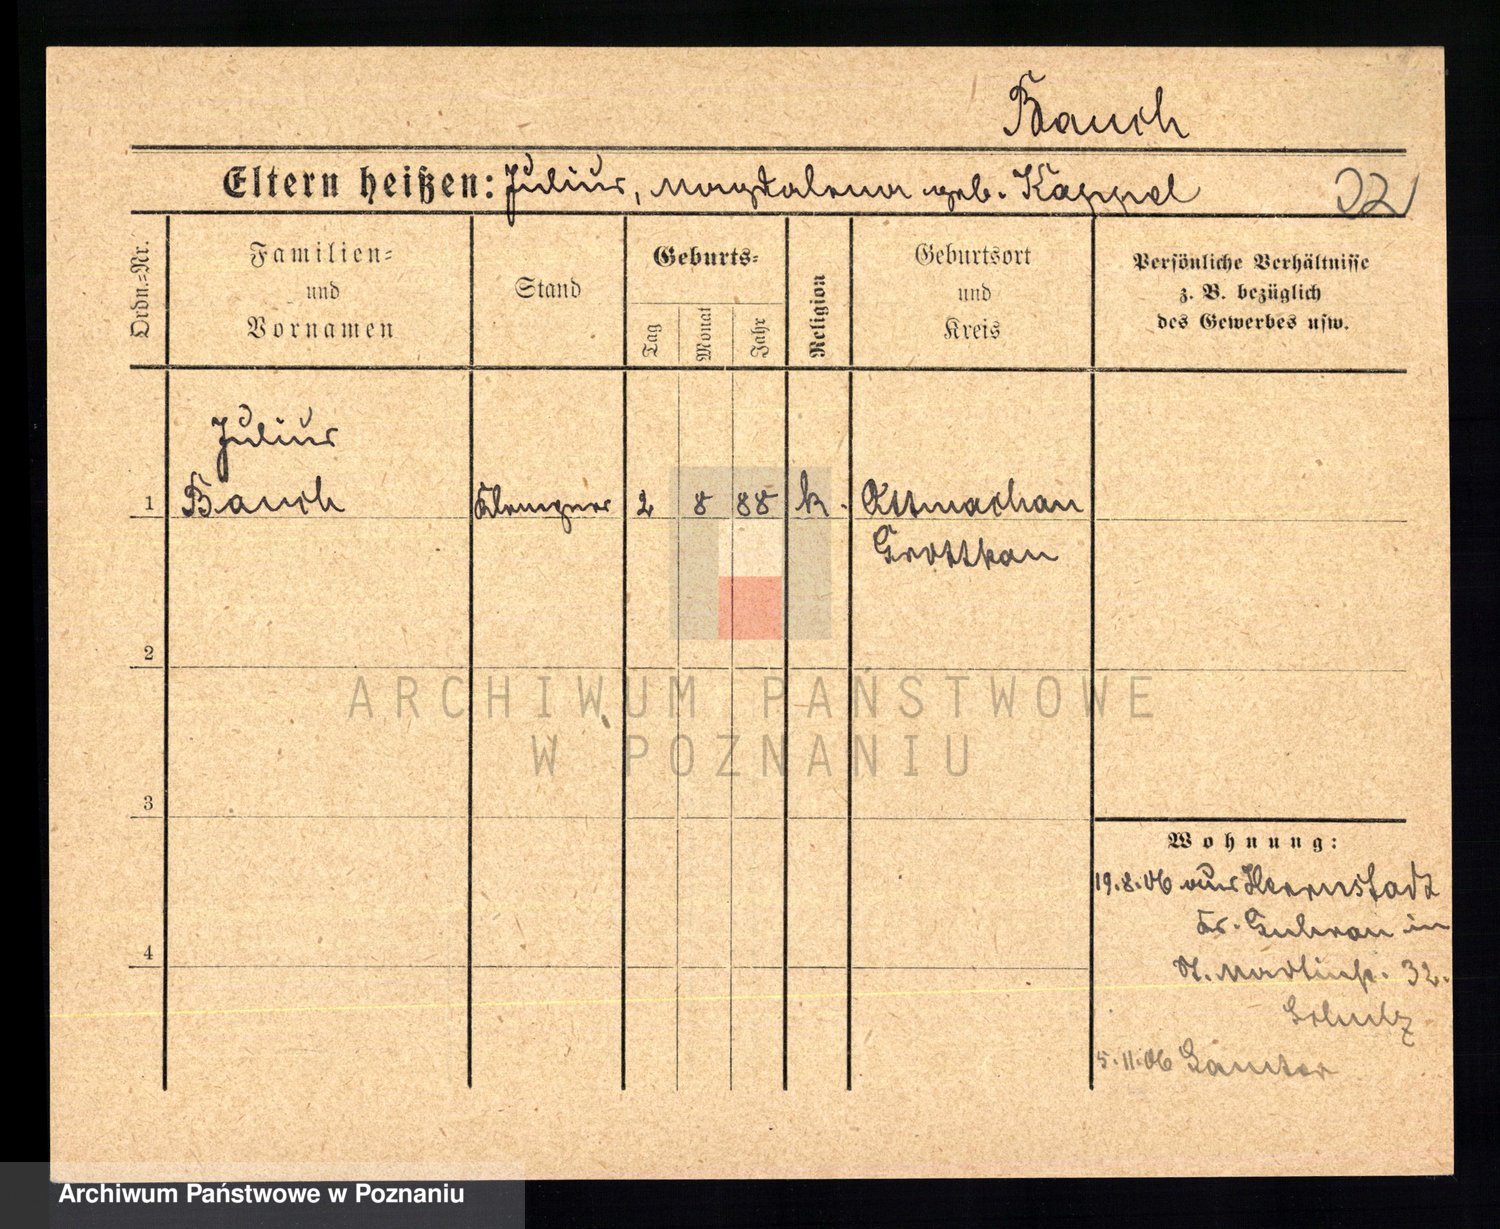 Bauch
Eltern heißen: Julius, Magdalena geb. Kappel
Ordn.-Nr.
Familien-
und
Vornamen
Stand
Geburts-
Tag
Monat
Jahr
Religion
Geburtsort
und
Kreis
Persönliche Verhältnisse
z. B. bezüglich
des Gewerbes usw.
Julius
1 Bauch Klempner 2 8 88 k. Ottmachau
Grottkau
2
ARCHIWUM PAŃSTWOWE
W POZNANIU
3
Wohnung:
19.8.06 aus Herrnstadt
Kr. Guhrau in
St. Martinstr. 32.
5.11.06 Samter
4
Archiwum Państwowe w Poznaniu